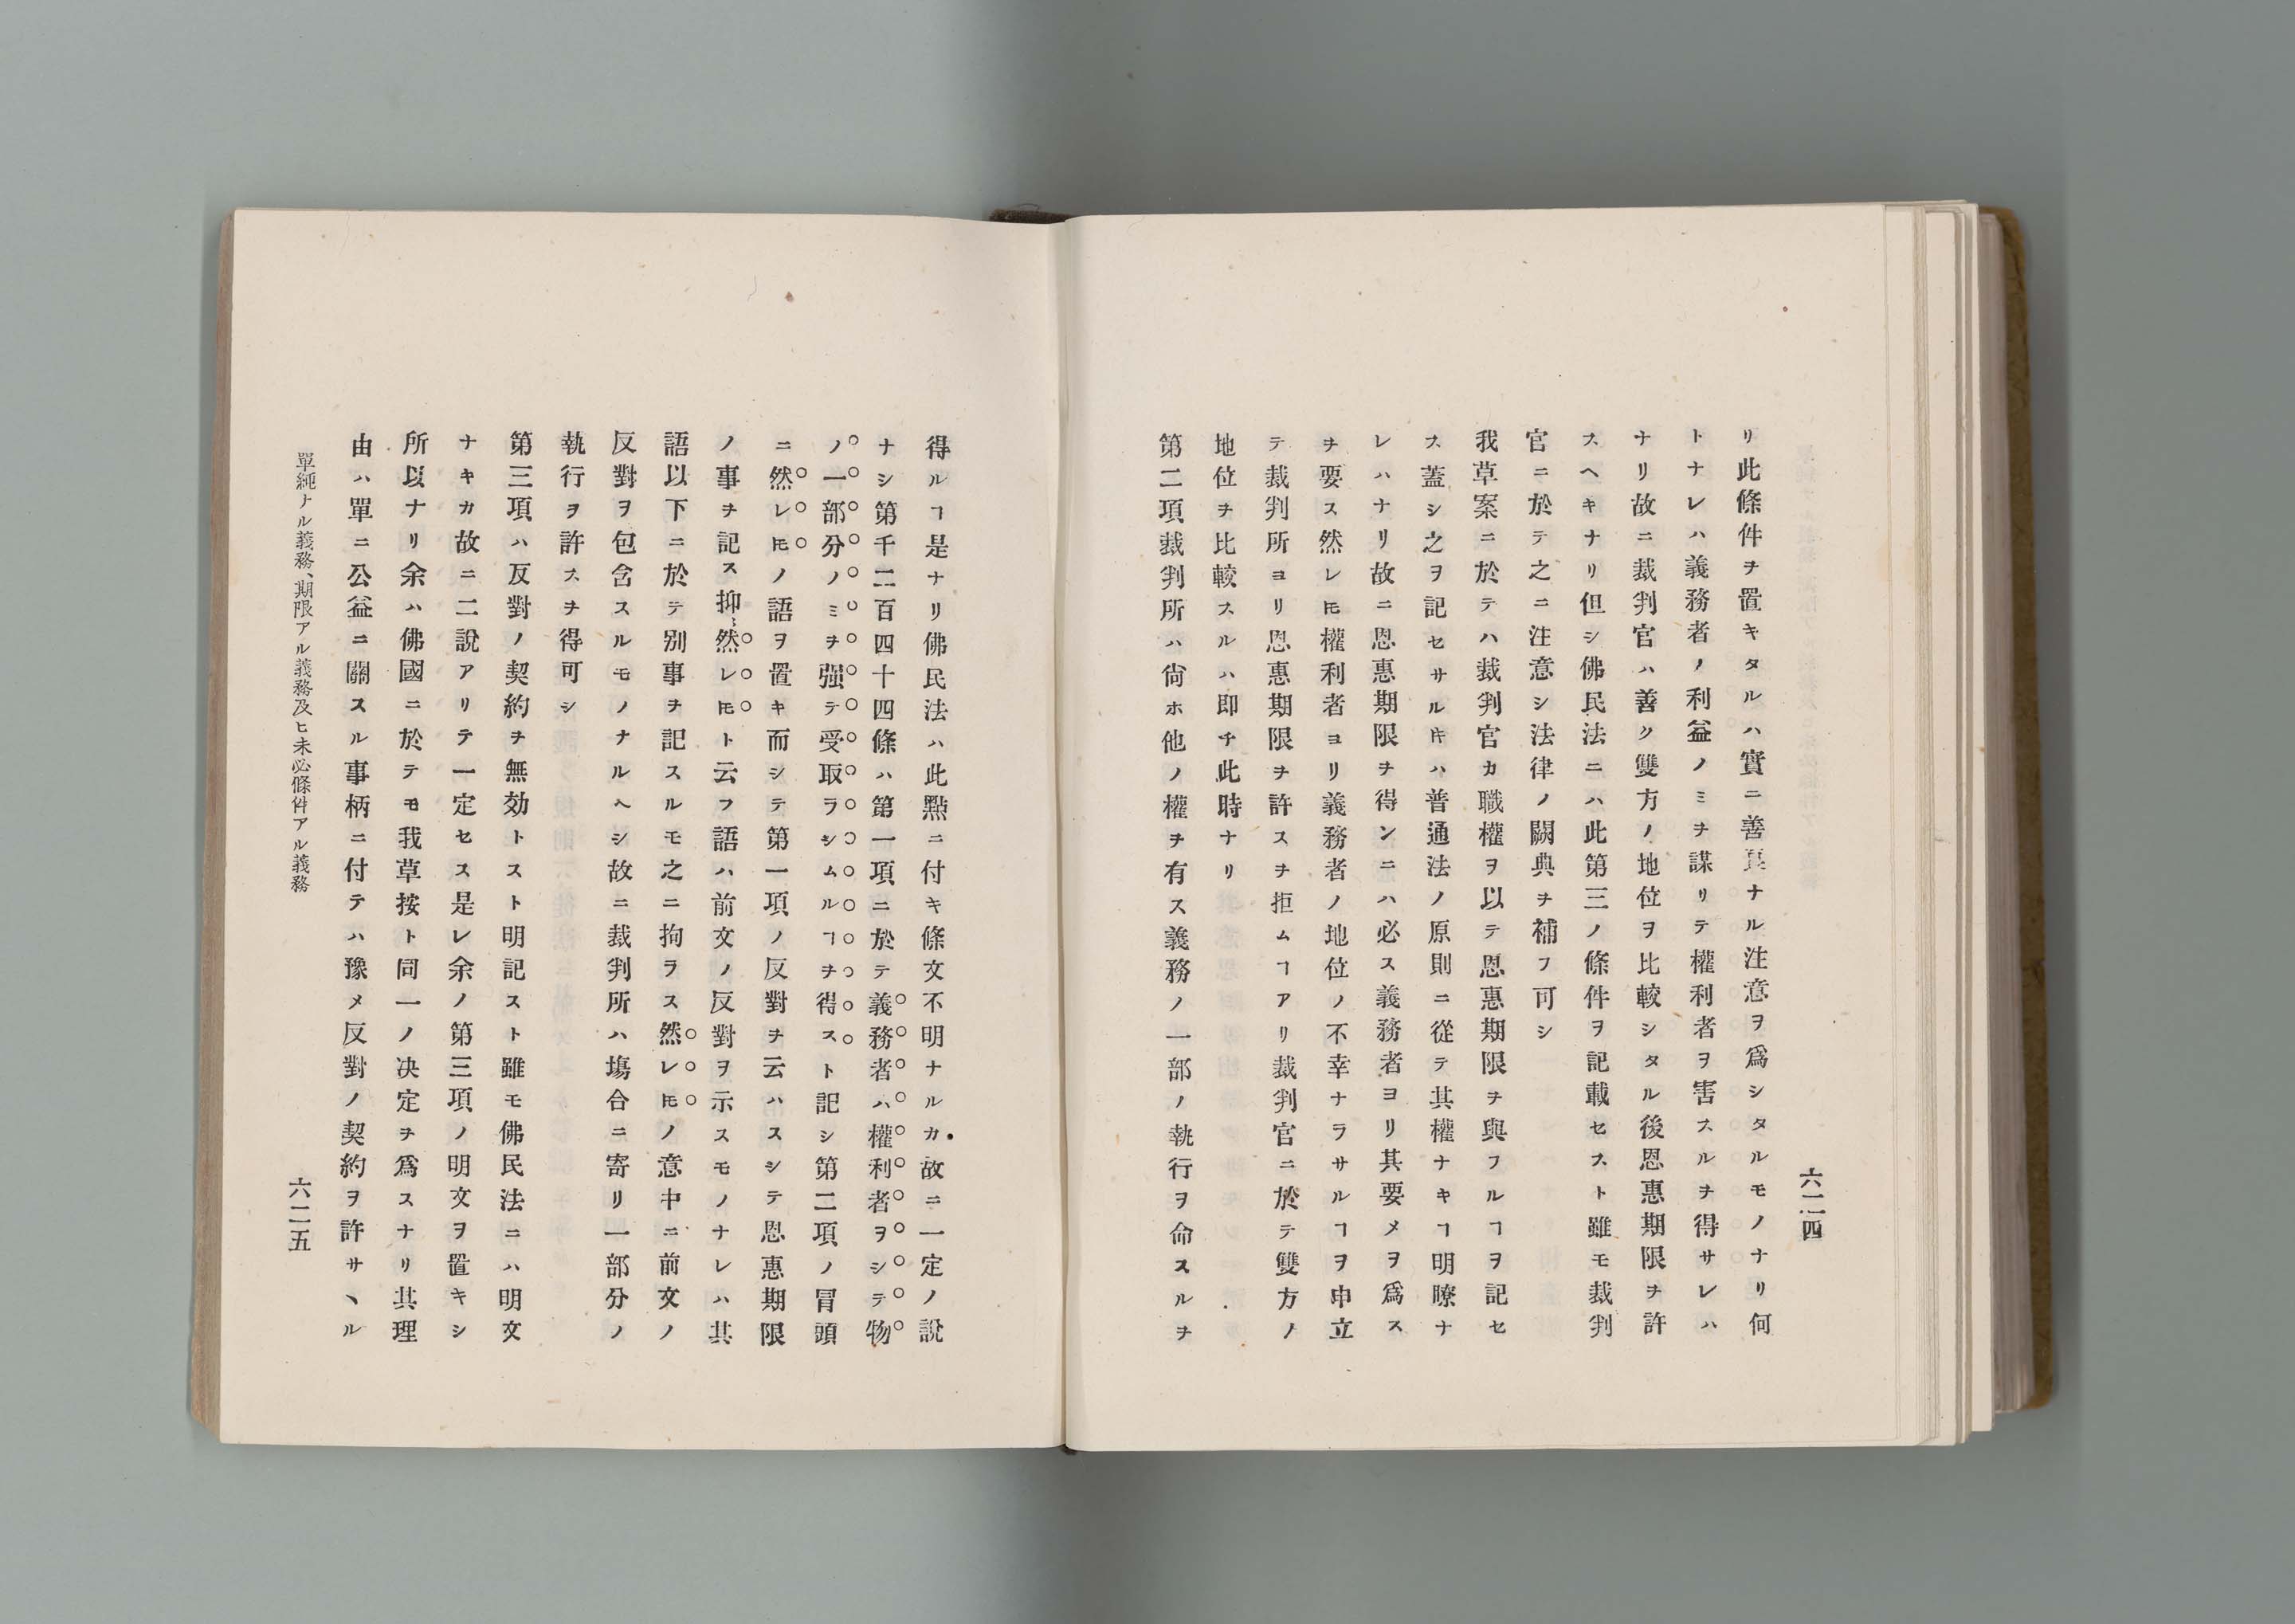 六二四
リ此條件ヲ置キタルハ實ニ善良ナル注意ヲ爲シタルモノナリ何
トナレハ義務者ノ利益ノミヲ謀リテ權利者ヲ害スルヲ得サレハ
ナリ故ニ裁判官ハ善ク雙方ノ地位ヲ比較シタル後恩惠期限ヲ許
スヘキナリ但シ佛民法ニハ此第三ノ條件ヲ記載セスト雖モ裁判
官ニ於テ之ニ注意シ法律ノ闕典ヲ補フ可シ
我草案ニ於テハ裁判官カ職權ヲ以テ恩惠期限ヲ與フルヿヲ記セ
ス蓋シ之ヲ記セサルキハ普通法ノ原則ニ從テ其權ナキヿ明瞭ナ
レハナリ故ニ恩惠期限ヲ得ンニハ必ス義務者ヨリ其要メヲ爲ス
ヲ要ス然レ𪜈權利者ヨリ義務者ノ地位ノ不幸ナラサルヿヲ申立
テ裁判所ヨリ恩惠期限ヲ許スヲ拒ムヿアリ裁判官ニ於テ雙方ノ
地位ヲ比較スルハ即チ此時ナリ
第二項裁判所ハ尙ホ他ノ權ヲ有ス義務ノ一部ノ執行ヲ命スルヲ
得ルヿ是ナリ佛民法ハ此點ニ付キ條文不明ナルカ故ニ一定ノ說
ナシ第千二百四十四條ハ第一項ニ於テ義務者ハ權利者ヲシテ物
ノ一部分ノミヲ强テ受取ラシムルヿヲ得スト記シ第二項ノ冒頭
ニ然レ𪜈ノ語ヲ置キ而シテ第一項ノ反對ヲ云ハスシテ恩惠期限
ノ事ヲ記ス抑〻然レ𪜈ト云フ語ハ前文ノ反對ヲ示スモノナレハ其
語以下ニ於テ別事ヲ記スルモ之ニ拘ラス然レ𪜈ノ意中ニ前文ノ
反對ヲ包含スルモノナルヘシ故ニ裁判所ハ塲合ニ寄リ一部分ノ
執行ヲ許スヲ得可シ
第三項ハ反對ノ契約ヲ無効トスト明記スト雖モ佛民法ニハ明文
ナキカ故ニ二說アリテ一定セス是レ余ノ第三項ノ明文ヲ置キシ
所以ナリ余ハ佛國ニ於テモ我草按ト同一ノ决定ヲ爲スナリ其理
由ハ單ニ公益ニ關スル事柄ニ付テハ豫メ反對ノ契約ヲ許サヽル
單純ナル義務、期限アル義務及ヒ未必條件アル義務
六二五